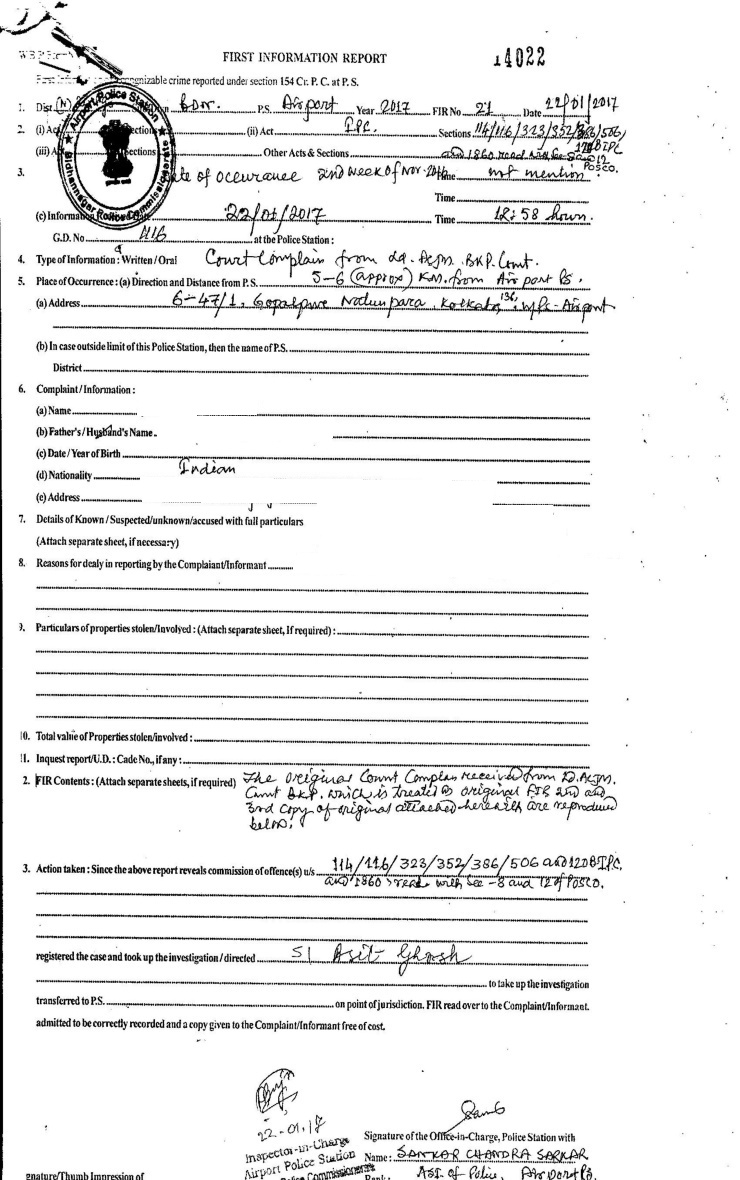 FIRST INFORMATION REPORT
14022
cognizable crime reported under section 154 Cr. P. C. at P. S.
1. Dist. (N) P.S. Airport Year 2017 FIR No 21 Date 22/01/2017
2. (i) Act Sections (ii) Act IPC. Sections 114/116/323/352/386/506/
120B IPC
(iii) Sections Other Acts & Sections and 1860 read with Sec 8 and 12
POSCO.
3. Date of occurance 2nd week of Nov. 2016 Time not mention.
Time
(c) Information 22/01/2017 Time 18:58 hours.
G.D. No at the Police Station :
Airport Police Station
Bidhannagar Police Commissionerate
4. Type of Information : Written / Oral Court Complain from Ld. ACJM. BKP. Court.
5. Place of Occurrence : (a) Direction and Distance from P. S. 5-6 (approx) KM. from Air port PS.
(a) Address 6-47/1, Gopalpure Natunpara, Kolkata 136, Airport
(b) In case outside limit of this Police Station, then the name of P.S.
District
6. Complaint / Information :
(a) Name
(b) Father's / Husband's Name
(c) Date / Year of Birth
(d) Nationality Indian
(e) Address
7. Details of Known / Suspected/unknown/accused with full particulars
(Attach separate sheet, if necessary)
8. Reasons for dealy in reporting by the Complaiant/Informant
9. Particulars of properties stolen/Involved : (Attach separate sheet, If required) :
10. Total value of Properties stolen/involved :
11. Inquest report/U.D. : Cade No., if any :
2. FIR Contents : (Attach separate sheets, if required) The original Court Complain received from Ld. ACJM.
Court BKP. which is treated as original FIR 2nd and
3rd copy of original attached herewith are reproduced
below:
3. Action taken : Since the above report reveals commission of offence(s) u/s 114/116/323/352/386/506 and 120B IPC.
and 1860 read with Sec -8 and 12 of POSCO.
registered the case and took up the investigation / directed SI Asit Ghosh
to take up the investigation
transferred to P.S. on point of jurisdiction. FIR read over to the Complaint/Informant.
admitted to be correctly recorded and a copy given to the Complaint/Informant free of cost.
22-01-17
Inspector-in-Charge
Airport Police Station
Police Commissionerate
Signature of the Office-in-Charge, Police Station with
Name: SANKAR CHANDRA SARKAR
Rank: ASI. of Police, Air port PS.
gnature/Thumb Impression of